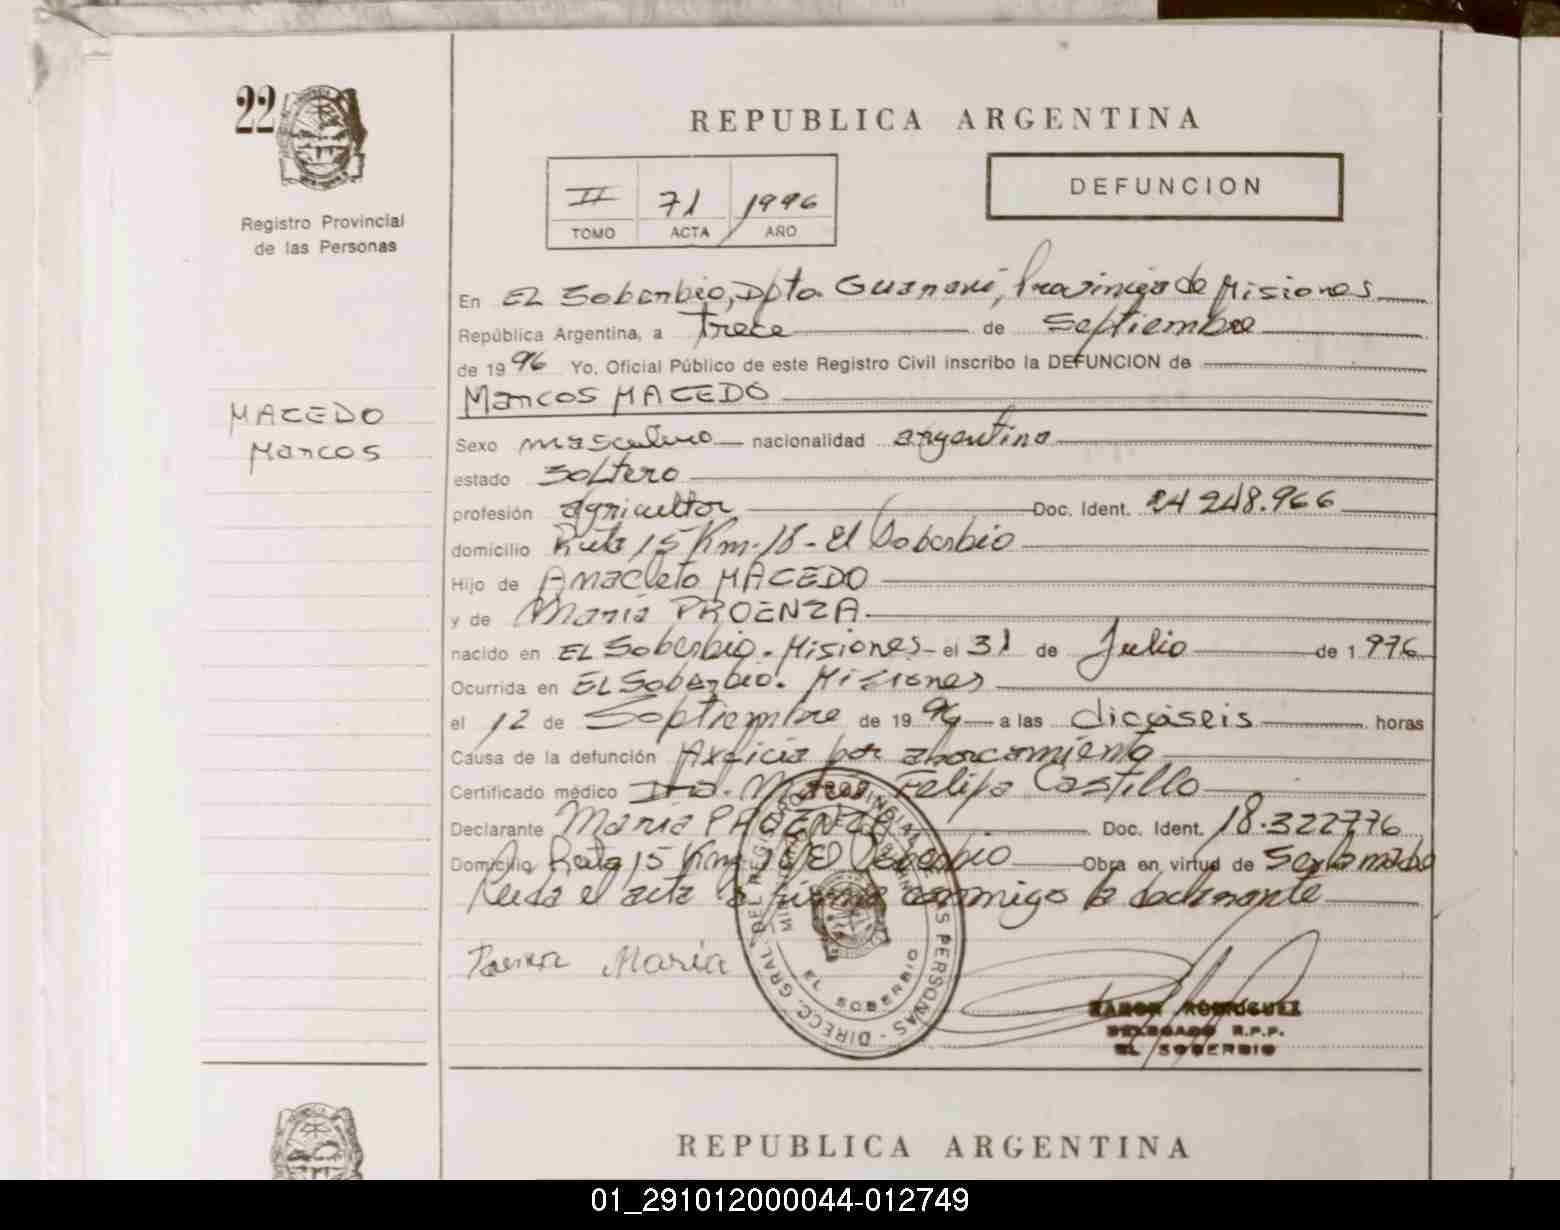 22
Registro Provincial
de las Personas
REPUBLICA ARGENTINA
II 71 1996
TOMO ACTA AÑO
DEFUNCION
MACEDO
Marcos
En EL Soberbio, Dpto Guaraní, Provincia de Misiones
República Argentina, a Trece de Septiembre
de 1996 Yo, Oficial Público de este Registro Civil inscribo la DEFUNCION de
Marcos MACEDO
Sexo masculino nacionalidad argentina
estado Soltero
profesión agricultor Doc. Ident. 24 248.966
domicilio Ruta 15 Km. 18 - El Soberbio
Hijo de Anacleto MACEDO
y de María PROENZA
nacido en EL Soberbio. Misiones el 31 de Julio de 1976
Ocurrida en EL Soberbio. Misiones
el 12 de Septiembre de 1996 a las dieciseis horas
Causa de la defunción Axficia por ahorcamiento
Certificado médico Dra. María Felipa Castillo
Declarante María PROENZA Doc. Ident. 18.322776
Domicilio Ruta 15 Km 18 El Soberbio Obra en virtud de Ser la madre
Leida el acta la firma conmigo la declarante
María
DIRECC. GRAL. DEL REGISTRO PROVINCIAL DE LAS PERSONAS
EL SOBERBIO
RAMON RODRIGUEZ
DELEGADO R.P.P.
EL SOBERBIO
REPUBLICA ARGENTINA
01_291012000044-012749